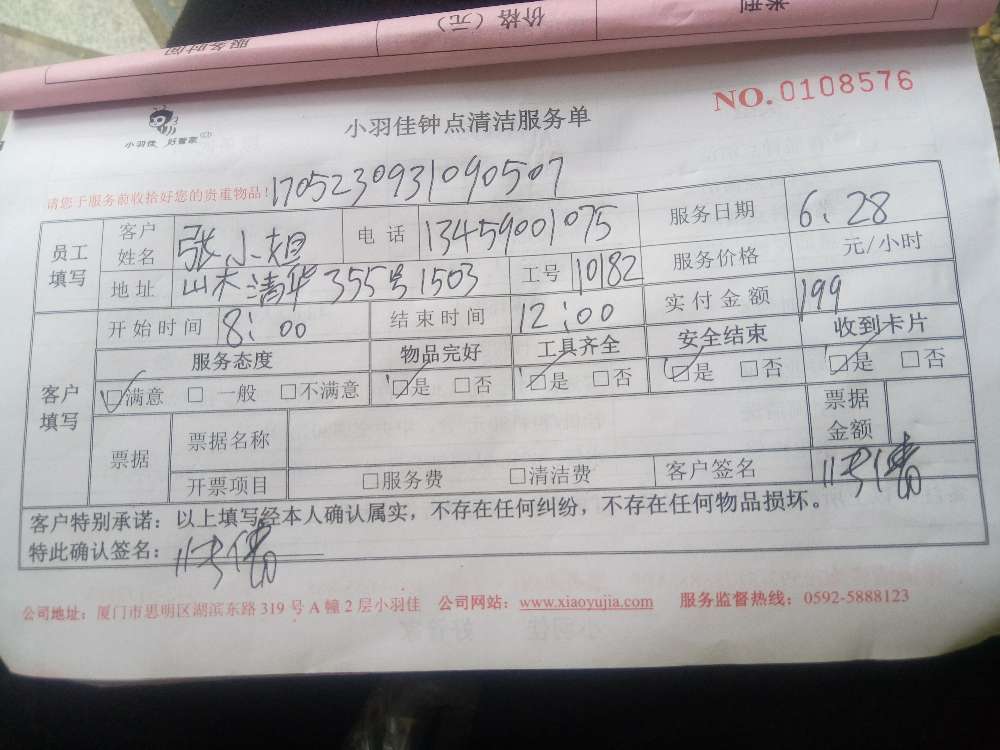 服务时间 价格(元) 类型
NO. 0108576
小羽佳 好管家
小羽佳钟点清洁服务单
请您于服务前收拾好您的贵重物品! 1705230931090507
员工填写 客户姓名 张小姐 电话 13459001075 服务日期 6.28
地址 山木清华355号1503 工号 10182 服务价格 元/小时
客户填写 开始时间 8:00 结束时间 12:00 实付金额 199
服务态度 物品完好 工具齐全 安全结束 收到卡片
☑满意 □一般 □不满意 ☑是 □否 ☑是 □否 ☑是 □否 ☑是 □否
票据 票据名称 票据金额
开票项目 □服务费 □清洁费 客户签名
客户特别承诺:以上填写经本人确认属实,不存在任何纠纷,不存在任何物品损坏。
特此确认签名:
公司地址:厦门市思明区湖滨东路319号A幢2层小羽佳 公司网站:www.xiaoyujia.com 服务监督热线:0592-5888123